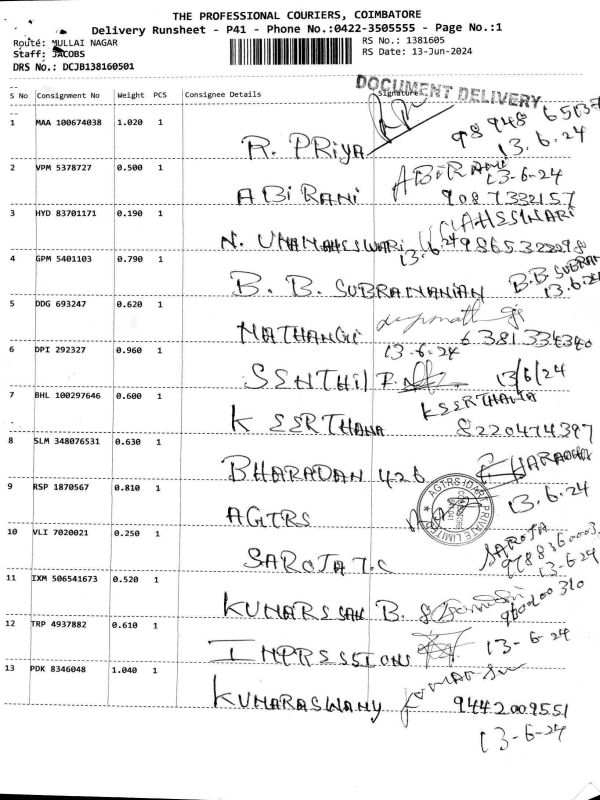 THE PROFESSIONAL COURIERS, COIMBATORE
Delivery Runsheet - P41 - Phone No.:0422-3505555 - Page No.:1
Route: MULLAI NAGAR
RS No.: 1381605
Staff: JACOBS
RS Date: 13-Jun-2024
DRS No.: DCJB138160501
DOCUMENT DELIVERY
S No Consignment No Weight PCS Consignee Details Signature
1 MAA 100674038 1.020 1
R. PRiYA 13.6.24
2 VPM 5378727 0.500 1
ABiRANi 13-6-24
ABiRANi 9087332157
3 HYD 83701171 0.190 1
N. UMAMAHESWARi 13.6.24
4 GPM 5401103 0.790 1
B. B. SUBRAMANIAN B.B SUBRAM
13.6.24
5 DDG 693247 0.620 1
MATHANGI 6381334340
13-6-24
6 DPI 292327 0.960 1
SENTHIL P. 13/6/24
7 BHL 100297646 0.600 1
K KEERTHANA
K KEERTHANA 8220474397
8 SLM 348076531 0.630 1
BHARADAN 426
13.6.24
9 RSP 1870567 0.810 1
AGTRS
AGTRS IDART PRIVATE LIMITED
10 VLI 7020021 0.250 1
SAROJA
SAROJA T.C 13-6-24
11 IXM 506541673 0.520 1
KUMARESAN B.
12 TRP 4937882 0.610 1
IMPRESSIONS 13-6-24
13 PDK 8346048 1.040 1
KUMARASWAMY 9442009551
13-6-24